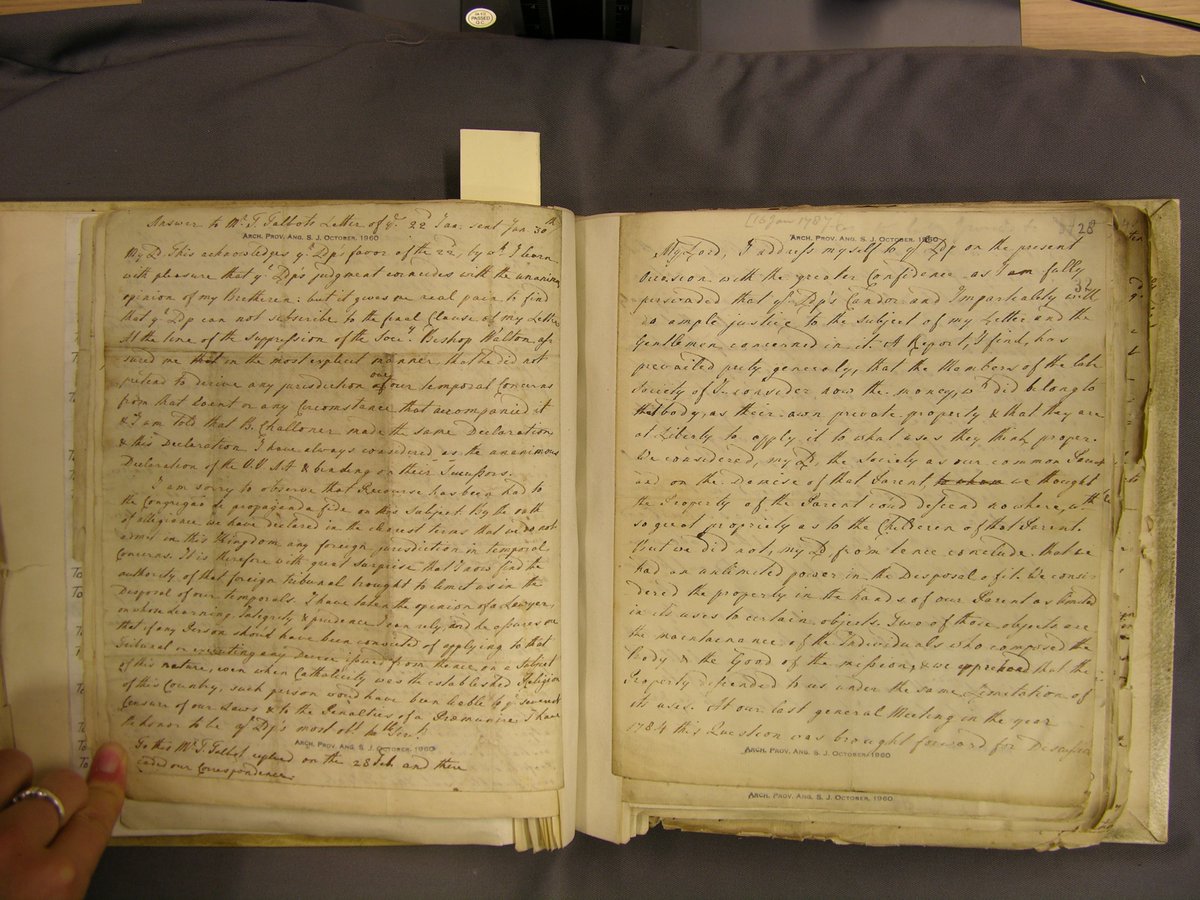 Answer to Mr. T. Talbots Letter of ye. 22d Jan. sent Jan 30th
ARCH. PROV. ANG. S. J. OCTOBER, 1960
My D. This acknowledges yr Dp's favor of the 22, by wh I learn
with pleasure that yr Dps judgment coincides with the unanim
opinion of my Bretheren: but it gives me real pain to find
that yr Dp can not subscribe to the final Clause of my Letter
At the time of the suppression of the Socy. Bishop Walton as
sured me that in the most explicit manner that he did not
pretend to derive any jurisdiction over our temporal Concerns
from that Event or any Circumstance that accompanied it
& I am told that B. Challoner made the same Declaration
& this Declaration I have always considered as the unanimous
Declaration of the V.V. A A & binding on their Sucessors.
I am sorry to observe that Recourse has been had to
the Congregao de propaganda fide on this Subject. By the oath
of allegiance we have declared in the clearest terms that we do not
admit in this Kingdom any foreign jurisdiction in temporal
Concerns. It is therefore with great surprise that I now find the
authority of that foreign Tribunal brought to limit us in the
Disposal of our temporals. I have taken the opinion of a Lawyer,
on whose Learning, Integrity & prudence I can rely, and he assures me
that if any Person should have been convicted of applying to that
Tribunal or executing any decree issued from thence on a subject
of this nature, even when Catholicity was the established Religion
of this Country, such person would have been liable to ye severest
Censure of our Laws & to the Penalties of a Præmunire I have
the honor to be yr Dp's most obt. hble Servt.
ARCH. PROV. ANG. S. J. OCTOBER, 1960
To this Mr. T. Talbot replied on the 28 feb. and there
ended our Correspondence.
[15 Jan 1787]
28
ARCH. PROV. ANG. S. J. OCTOBER, 1960
My Lord, I address myself to yr Dp on the present
Occasion with the greater Confidence as I am fully
32
perswaded that yr Dp's Candor and Impartiality will
do ample justice to the subject of my Letter and the
Gentlemen concerned in it. A Report, I find, has
prevailed pretty generaly, that the Members of the late
Society of J. consider now the money, wh did belong to
that body, as their own private property & that they are
at Liberty to apply it to what uses they think proper.
We considered, my D, the Society as our common Parent
and on the Demise of that Parent we thought
the Property of the Parent coud descend no where, with
so great propriety as to the Children of that Parent.
But we did not, my D, from hence conclude that we
had an unlimited power in the Disposal of it. We consi=
dered the property in the hands of our Parent as limited
in its uses to certain objects. Two of those objects are
the maintainance of the Individuals who composed the
body & the Good of the mission, & we apprehend that the
Property descended to us under the same Limitation of
its uses. At our last general Meeting in the year
1784 this Question was brought forward for Discussion
ARCH. PROV. ANG. S. J. OCTOBER, 1960
ARCH. PROV. ANG. S. J. OCTOBER, 1960